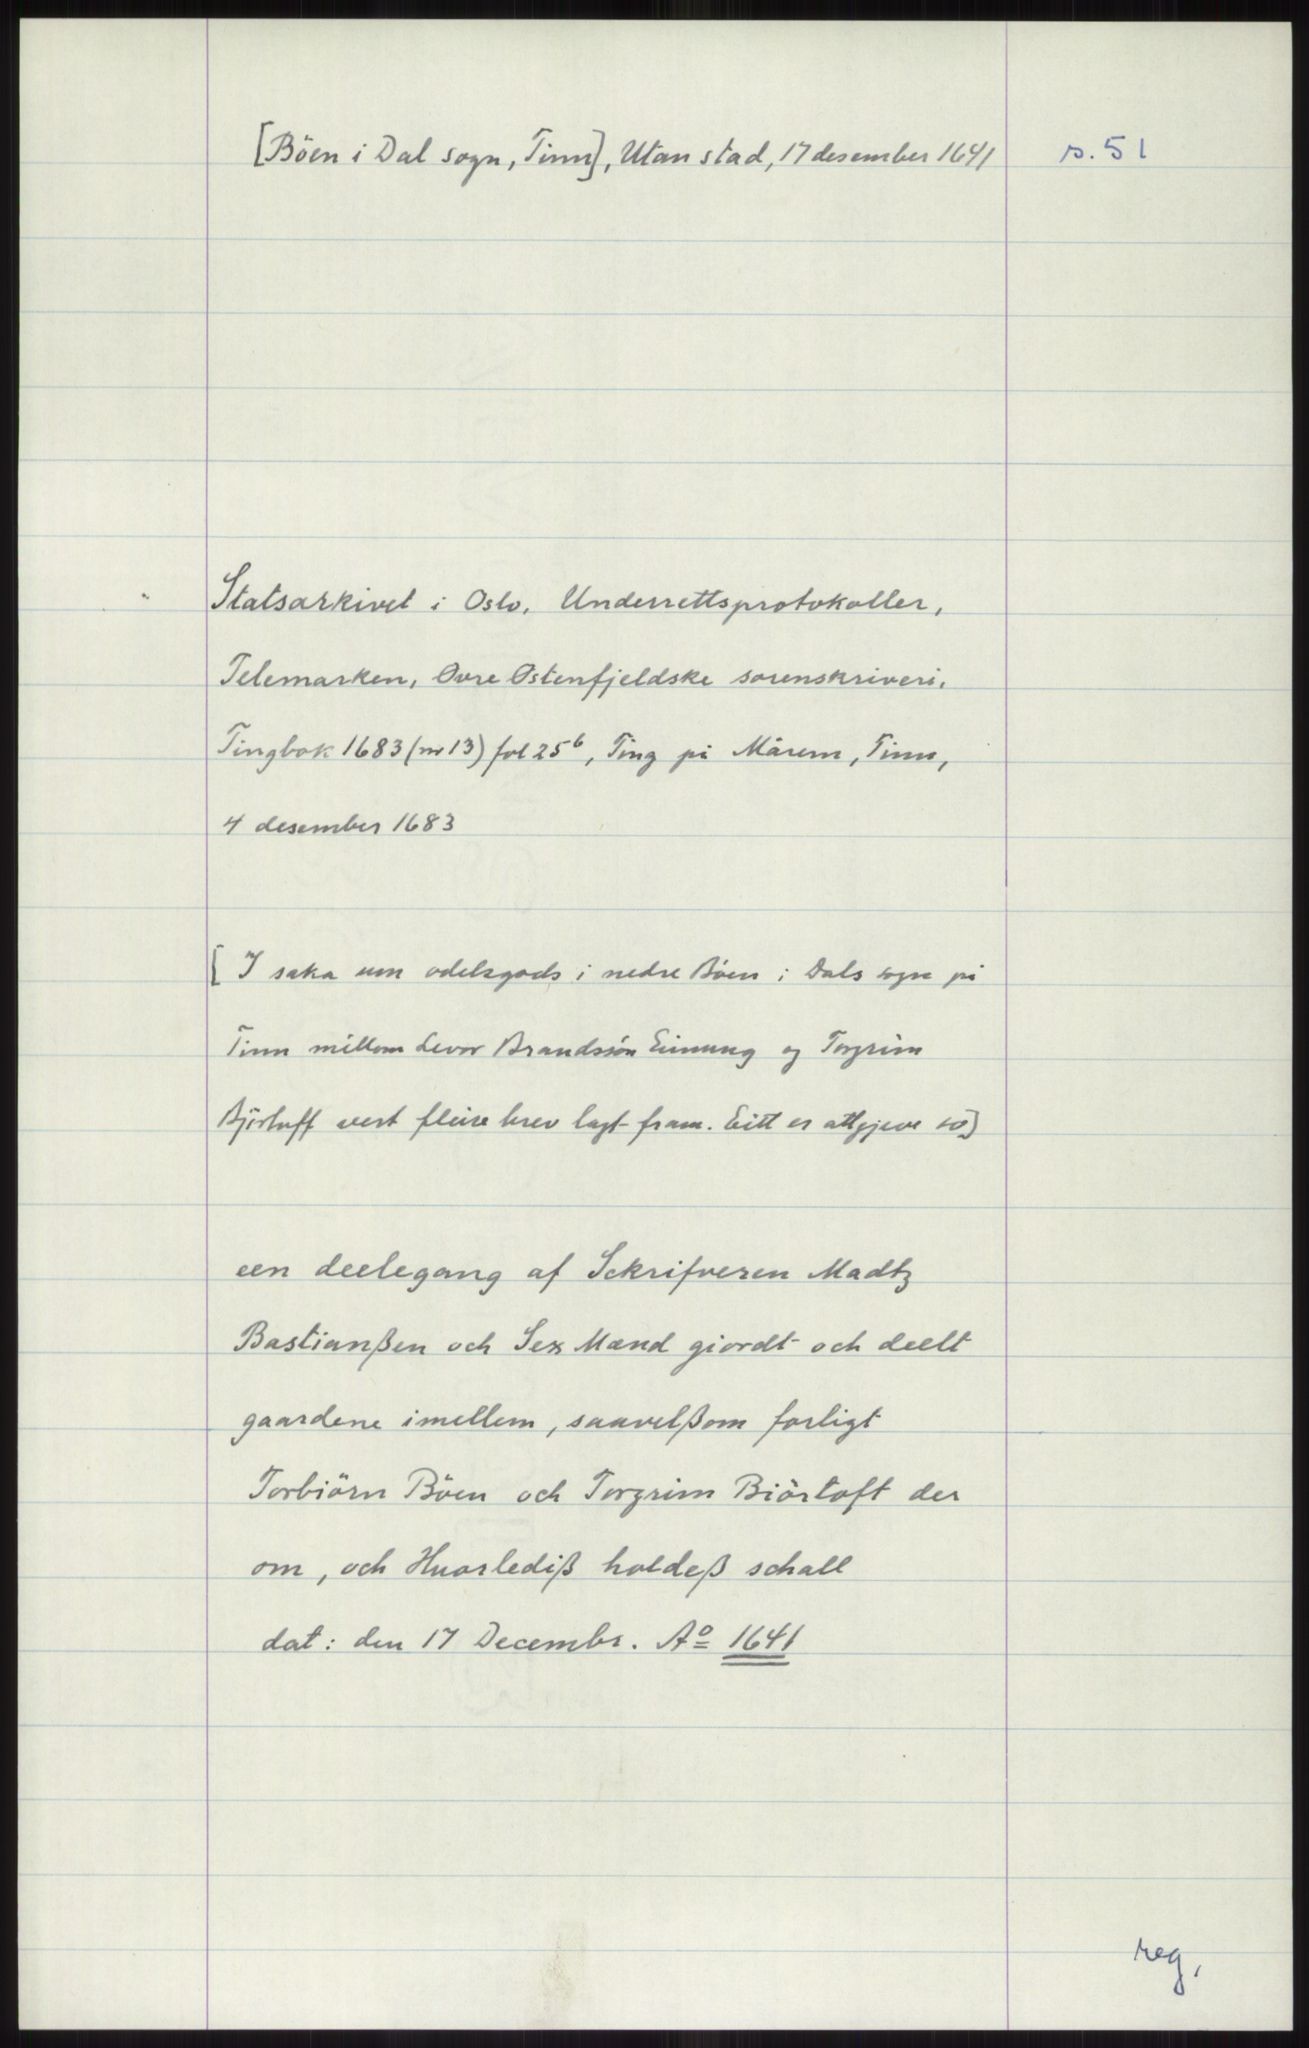 [Böen i Dal sogn, Tinn], Utan stad, 17 desember 1641
s. 51
Statsarkivet i Oslo. Underrettsprotokoller,
Telemarken, Øvre Østenfjeldske sorenskriveri.
Tingbok 1683 (nr 13) fol 25b, Ting på Mårem, Tinn,
4 desember 1683
[I saka um odelsgods i nedre Böen i Dals sogn på
Tinn millom Levor Brandssön Einung og Torgrim
Björtuft vert fleire brev lagt fram. Eitt er attgjeve so]
een deelegang af Sckrifveren Madtz
Bastianßen och Sex Mænd giordt och deelt
gaardene imellem, saavelßom forligt
Torbiörn Böen och Torgrim Biörtoft der
om, och Huorlediß holdeß schall
dat: den 17 Decembr. Ao 1641
reg.